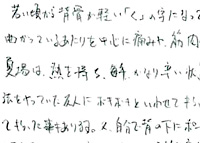 若い頃から背骨が軽い「く」の字になって
曲がっているあたりを中心に痛みや、筋肉
夏場は、熱を持ち、
かなり辛い状
法をやっていた友人にボキボキといわせてもら
てもらった事もあります。又、自分で背の下にボ